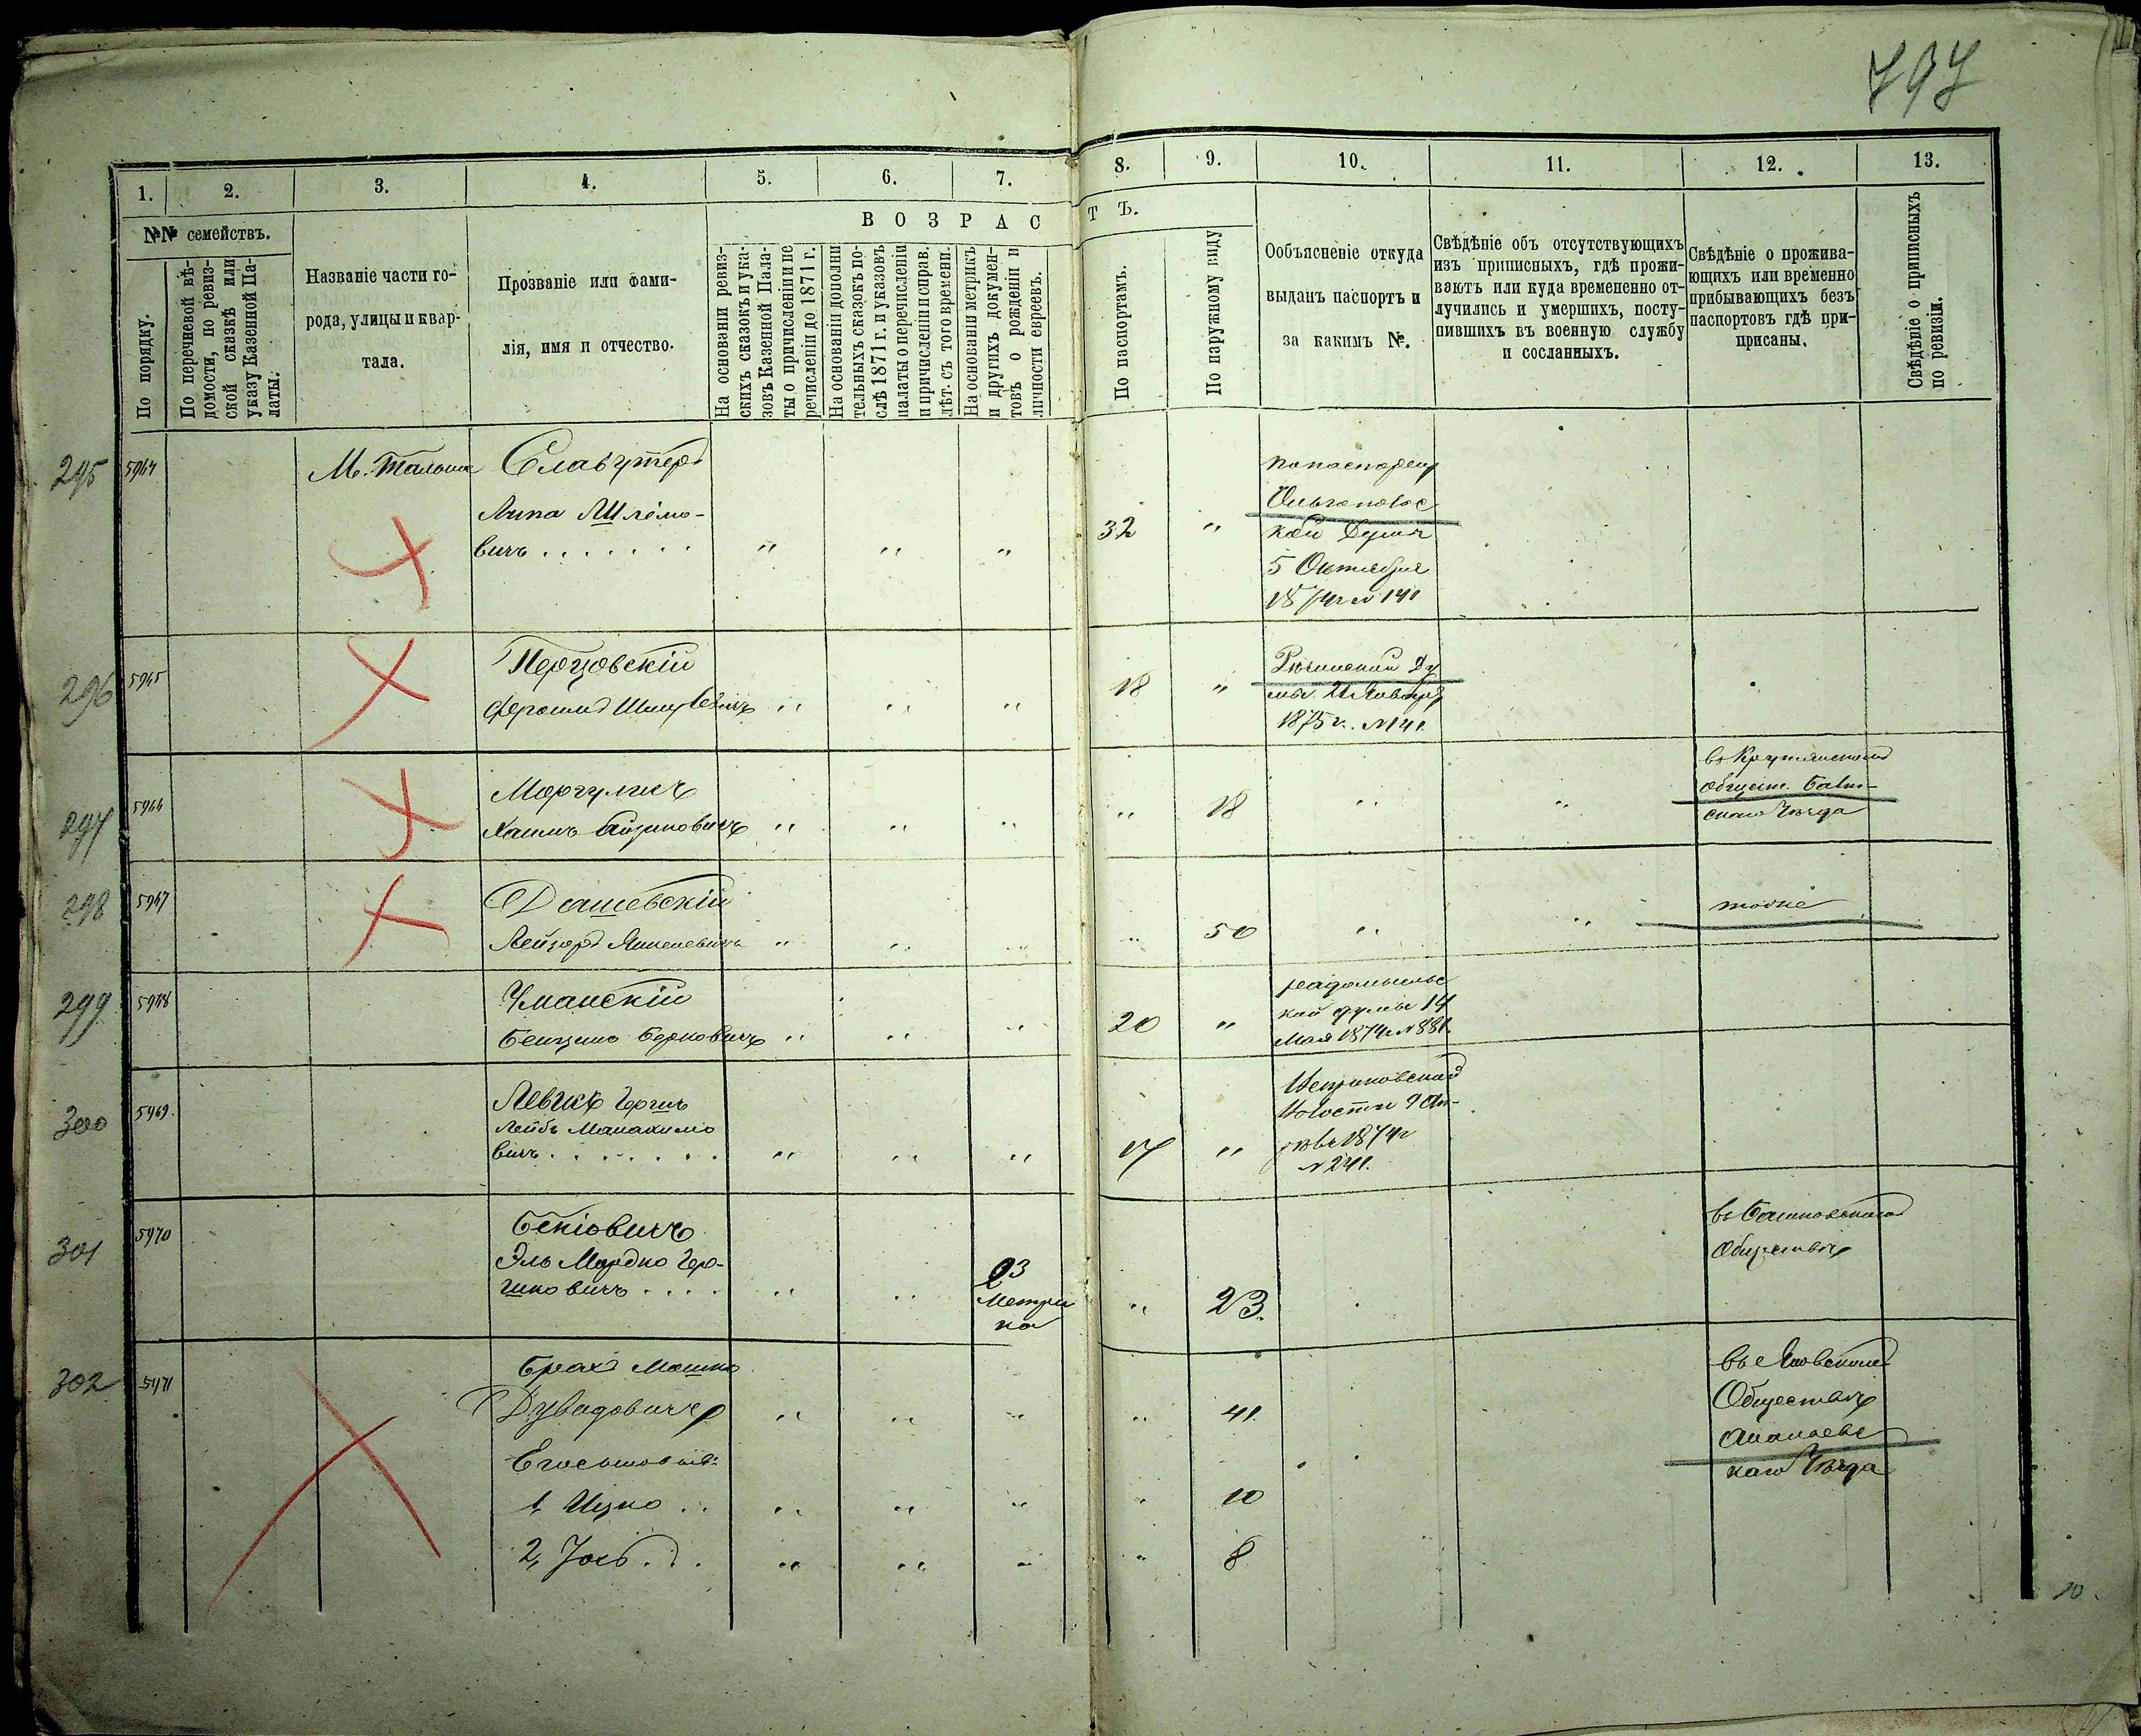 797
1. 2. 3. 4. 5. 6. 7. 8. 9. 10. 11. 12. 13.
№№ семействъ.
По порядку.
По перечневой вѣ-
домости, по ревиз-
ской сказкѣ или
указу Казенной Па-
латы.
Названіе части го-
рода, улицы и квар-
тала.
Прозваніе или фами-
лія, имя и отчество.
ВОЗРАСТЪ.
На основаніи ревиз-
скихъ сказокъ и ука-
зовъ Казенной Пала-
ты о причисленіи и пе
речисленіи до 1871 г.
На основаніи дополни
тельныхъ сказокъ по-
слѣ 1871 г. и указовъ
палаты о перечисленіи
и причисленіи и справ.
лѣт. съ того времени.
На основаніи метрикъ
и другихъ докумен-
товъ о рожденіи и
личности евреевъ.
По паспортамъ.
По наружному виду
Оообъясненіе откуда
выданъ паспортъ и
за какимъ №.
Свѣдѣніе объ отсутствующихъ
изъ приписныхъ, гдѣ прожи-
ваютъ или куда временено от-
лучились и умершихъ, посту-
пившихъ въ военную службу
и сосланныхъ.
Свѣдѣніе о прожива-
ющихъ или временно
прибывающихъ безъ
паспортовъ гдѣ при-
писаны.
Свѣдѣніе о приписныхъ
по ревизіи.
295 5964 М. Тальное Славутеръ
Липа Шлемо-
вичъ . . . . . . . " " " 32 "
по паспорту
Ольгопольс
кой Думы
5 Октября
1874 г № 141
296 5965 Перцовскій
Шмулевичъ " " " 18 "
Ду
мы. 21 Января
1875 г. № 141.
297 5966 Моргулисъ
Хаимъ Айзиковичъ " " " " 18 " "
въ Крутянскомъ
общест. Балт-
скаго Уѣзда
298 5967 Дашевскій
Лейзоръ Янкелевичъ " " " " 50 " "
тоже
299 5968 Уманскій
Бенционъ Берковичъ " " " 20 "
радомысльс
кой думы 14
Мая 1874 г № 881.
300 5969. Левикъ Герш
Лейбъ
вичъ . . . . . . . " " " 17 "
Волости 9
1874 г
№ 241.
301 5970
Эль Мордко Гер-
шковичъ . . . . " " 23
Метри
ка " 23.
въ
Обществѣ
302 5971 Брахъ Мошко
Дувидовичъ " " " " 41.
Его сыновья:
1, Ицко . . " " " " 10
2, Іось . . . " " " " 8
въ
Обществѣ
Ананьевс
каго Уѣзда
10.